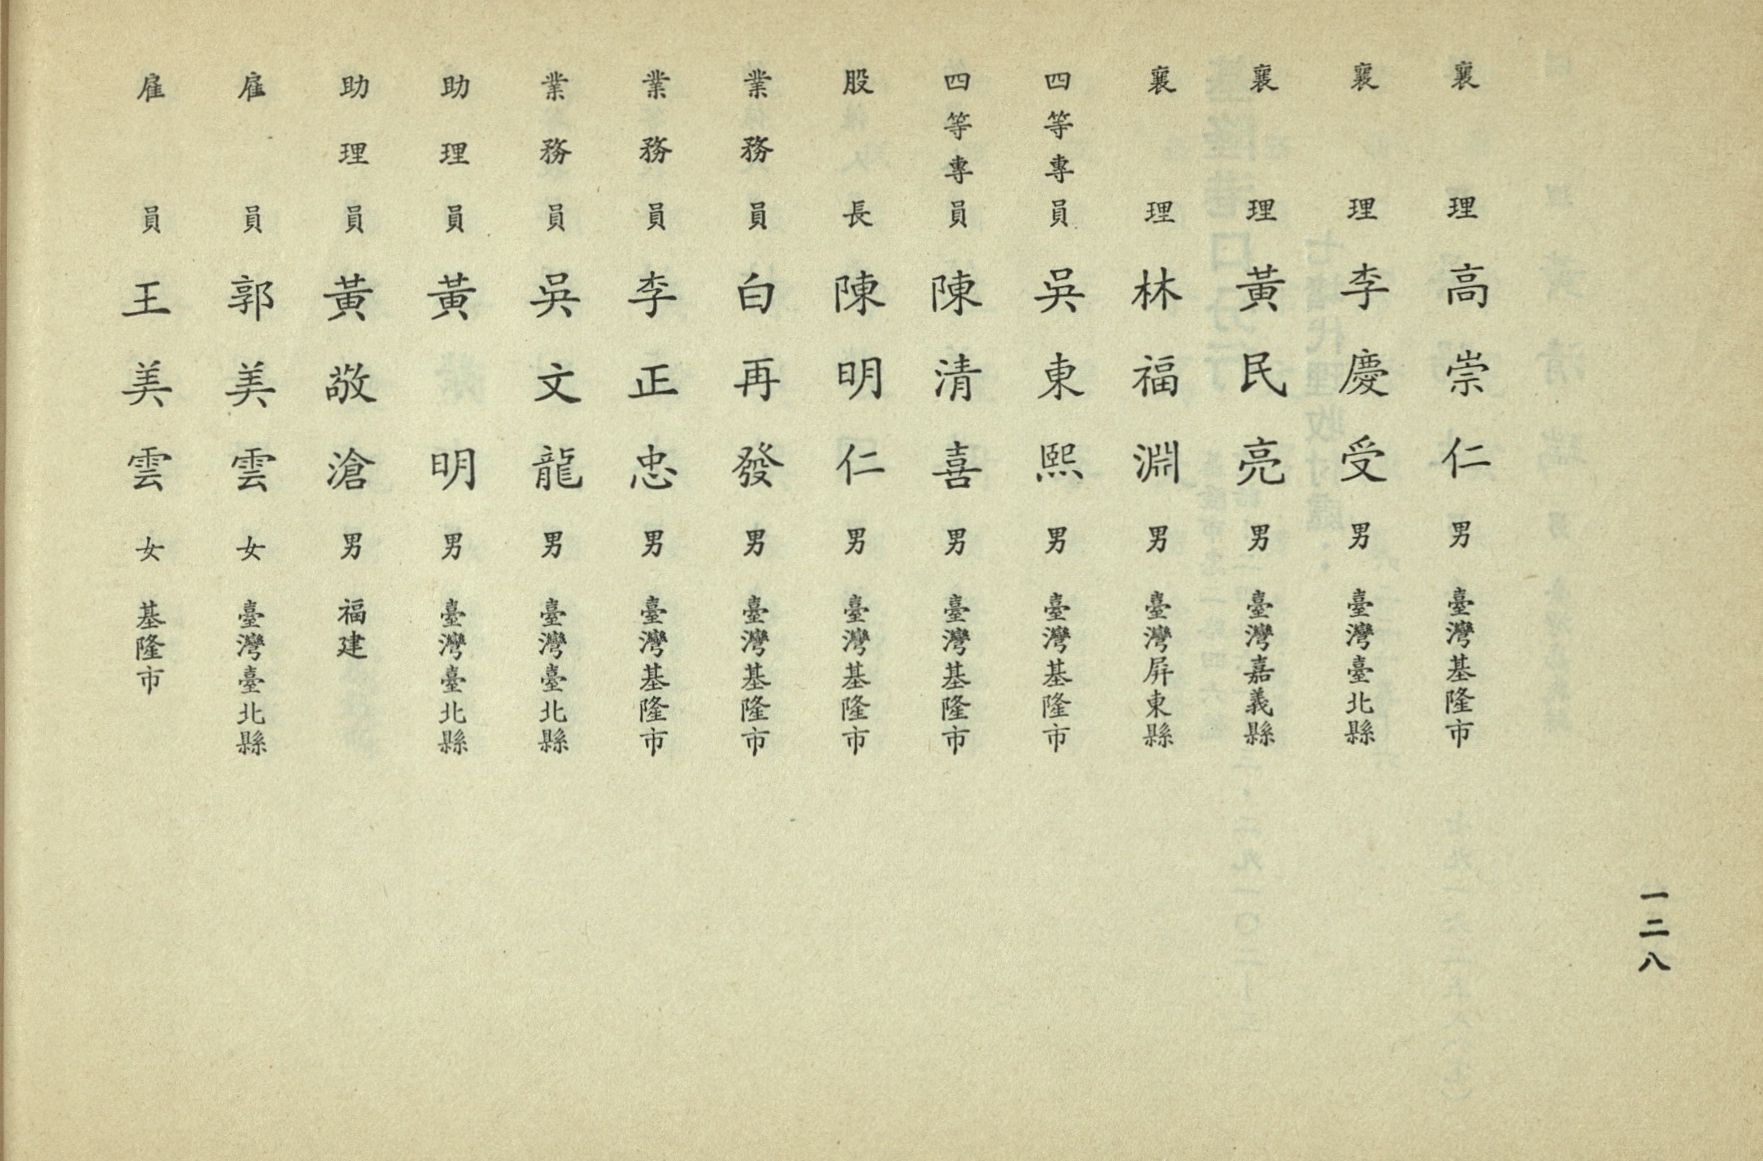 一二八
襄理 高崇仁 男 臺灣基隆市
襄理 李慶受 男 臺灣臺北縣
襄理 黃民亮 男 臺灣嘉義縣
襄理 林福淵 男 臺灣屏東縣
四等專員 吳東熙 男 臺灣基隆市
四等專員 陳清喜 男 臺灣基隆市
股長 陳明仁 男 臺灣基隆市
業務員 白再發 男 臺灣基隆市
業務員 李正忠 男 臺灣基隆市
業務員 吳文龍 男 臺灣臺北縣
助理員 黃明 男 臺灣臺北縣
助理員 黃敬滄 男 福建
雇員 郭美雲 女 臺灣臺北縣
雇員 王美雲 女 基隆市